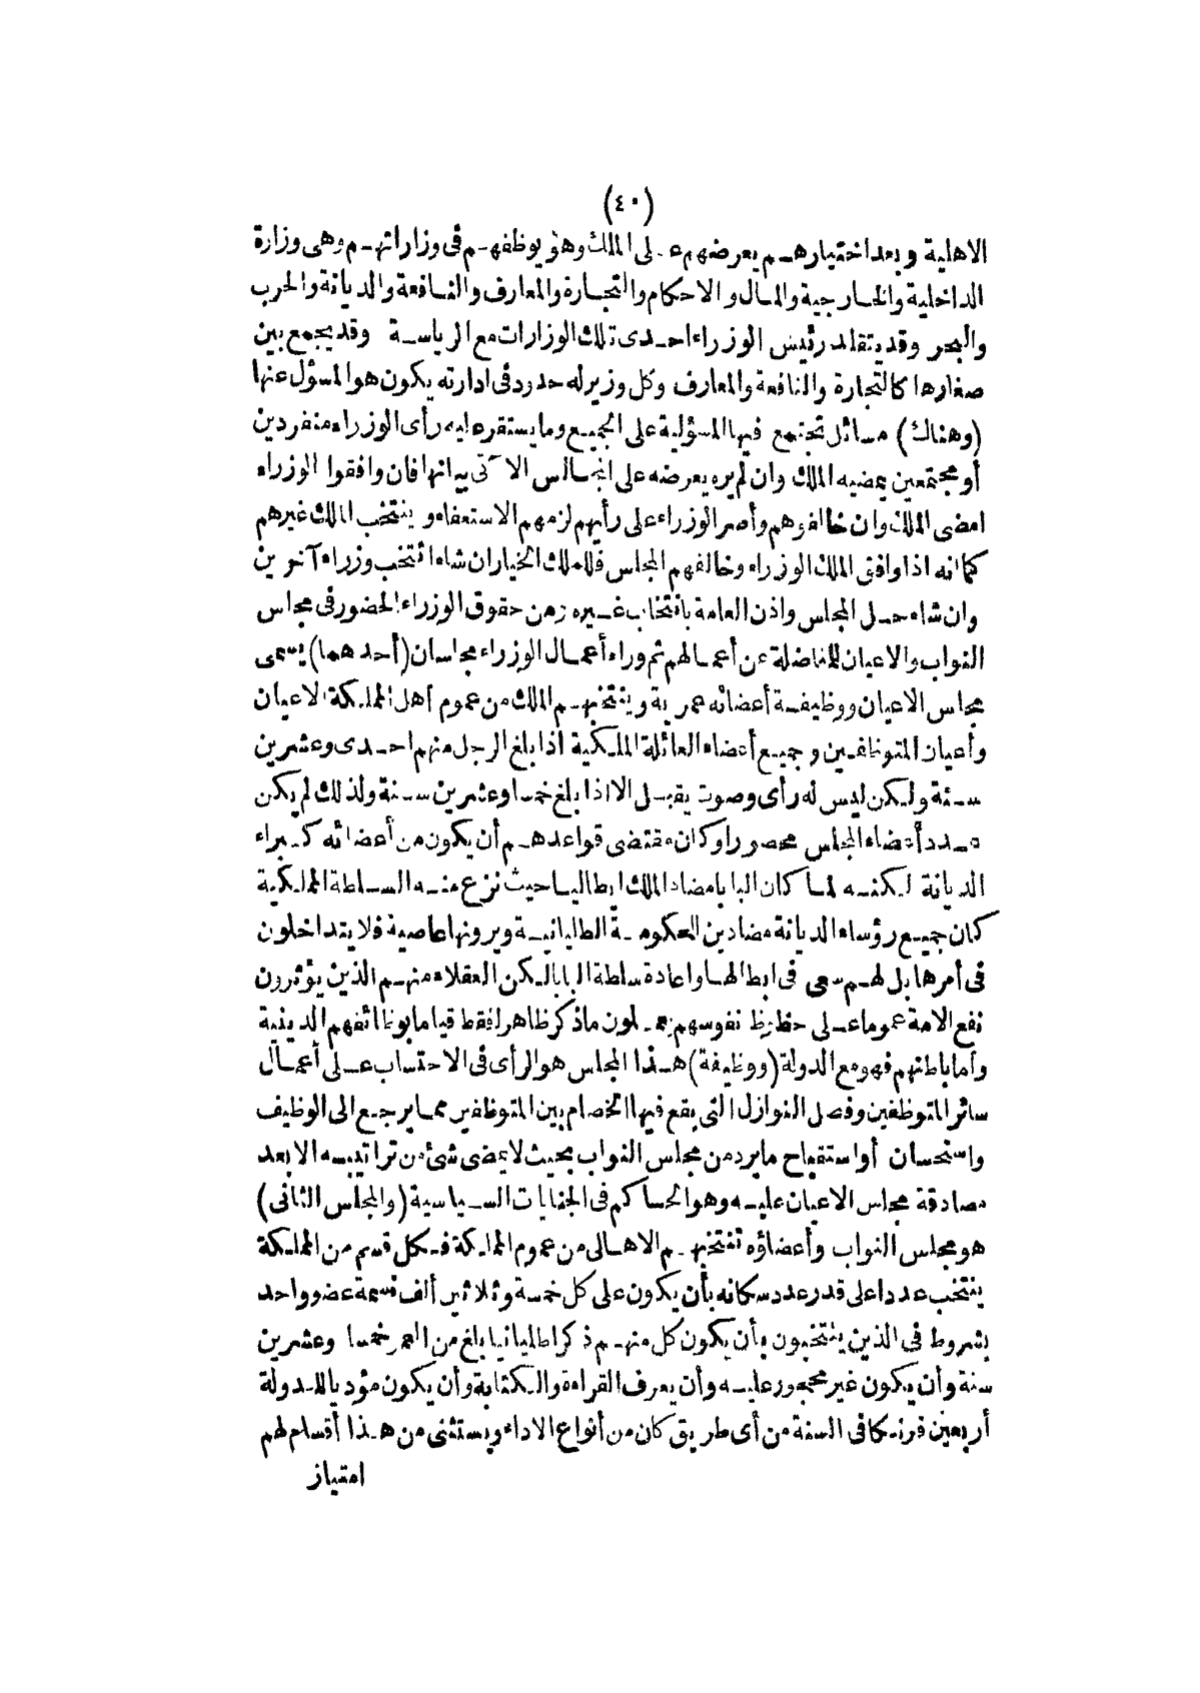 (٤٠)
الاهلية وبعد اختيارهم يعرضهم على الملك وهو يوظفهم فى وزاراتهم وهى وزارة
الداخلية والخارجية والمال والاحكام والتجارة والمعارف والنافعة والديانة والحرب
والبحر وقد يتقلد رئيس الوزراء احدى تلك الوزارات مع الرياسة وقد يجمع بين
صغارها كالتجارة والنافعة والمعارف وكل وزير له حدود فى ادارته يكون هو المسؤل عنها
(وهناك) مسائل تجتمع فيها المسؤلية على الجميع وما يستقر عليه رأى الوزراء منفردين
أو مجتمعين يمضيه الملك وان لم يره يعرضه على المجالس الآتى بيانها فان وافقوا الوزراء
امضى الملك وان خالفوهم وأصر الوزراء على رأيهم لزمهم الاستعفاء وينتخب الملك غيرهم
كما انه اذا وافق الملك الوزراء وخالفهم المجلس فللملك الخيار ان شاء انتخب وزراء آخرين
وان شاء حل المجلس واذن العامة بانتخاب غيره ومن حقوق الوزراء الحضور فى مجلس
النواب والاعيان للمناضلة عن أعمالهم ثم وراء أعمال الوزراء مجلسان (أحدهما) يسمى
مجلس الاعيان ووظيفة أعضائه عمرية وينتخبهم الملك من عموم أهل المملكة الاعيان
وأعيان المتوظفين وجميع أعضاء العائلة الملكية اذا بلغ الرجل منهم احدى وعشرين
سنة ولكن ليس له رأى وصوت يقبل الا اذا بلغ خمسا وعشرين سنة ولذلك لم يكن
عدد أعضاء المجلس محصورا وكان مقتضى قواعدهم أن يكون من أعضائه كبراء
الديانة لكنه لما كان البابا مضادا لملك ايطاليا حيث نزع منه السلطة الملكية
كان جميع رؤساء الديانة مضادين للحكومة الطليانية ويرونها عاصية فلا يتداخلون
فى أمرها بل لهم سعى فى ابطالها واعادة سلطة البابا لكن العقلاء منهم الذين يؤثرون
نفع الامة عموما على حظوظ نفوسهم يعملون ما ذكر ظاهرا فقط قياما بوظائفهم الدينية
وأما باطنهم فهو مع الدولة (ووظيفة) هذا المجلس هو الرأى فى الاحتساب على أعمال
سائر المتوظفين وفصل النوازل التى يقع فيها الخصام بين المتوظفين مما يرجع الى الوظيف
واستحسان أو استقباح ما يرد من مجلس النواب بحيث لا يمضى شئ من تراتيبه الا بعد
مصادقة مجلس الاعيان عليه وهو الحاكم فى الجنايات السياسية (والمجلس الثانى)
هو مجلس النواب وأعضاؤه تنتخبهم الاهالى من عموم المملكة فكل قسم من المملكة
ينتخب عددا على قدر عدد سكانه بأن يكون على كل خمسة وثلاثين ألف نسمة عضو واحد
بشروط فى الذين ينتخبون بأن يكون كل منهم ذكرا طليانيا بلغ من العمر خمسا وعشرين
سنة وأن يكون غير محجور عليه وأن يعرف القراءة والكتابة وأن يكون مؤديا للدولة
أربعين فرنكا فى السنة من أى طريق كان من أنواع الاداء ويستثنى من هذا أقسام لهم
امتياز